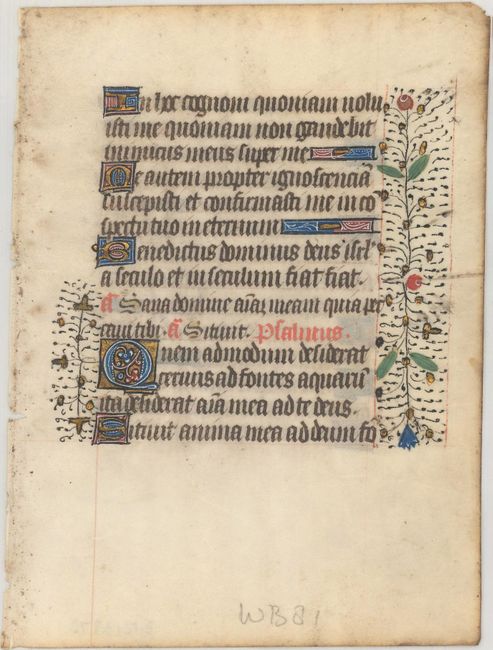 In hoc cognoui quoniam uolu
isti me quoniam non gaudebit
inimicus meus super me
Me autem propter ignoscenciā
suscepisti et confirmasti me in co
spectu tuo in eternum
Benedictus dominus deus isrl'
a seculo et in seculum fiat fiat.
añ Sana domine aīaȝ meam quia pec
caui tibi. añ Sitiuit. Psalmus.
Quem admodum desiderat
ceruus ad fontes aquarū
ita desiderat aīa mea ad te deus.
Sitiuit anima mea ad deum fo
WB81